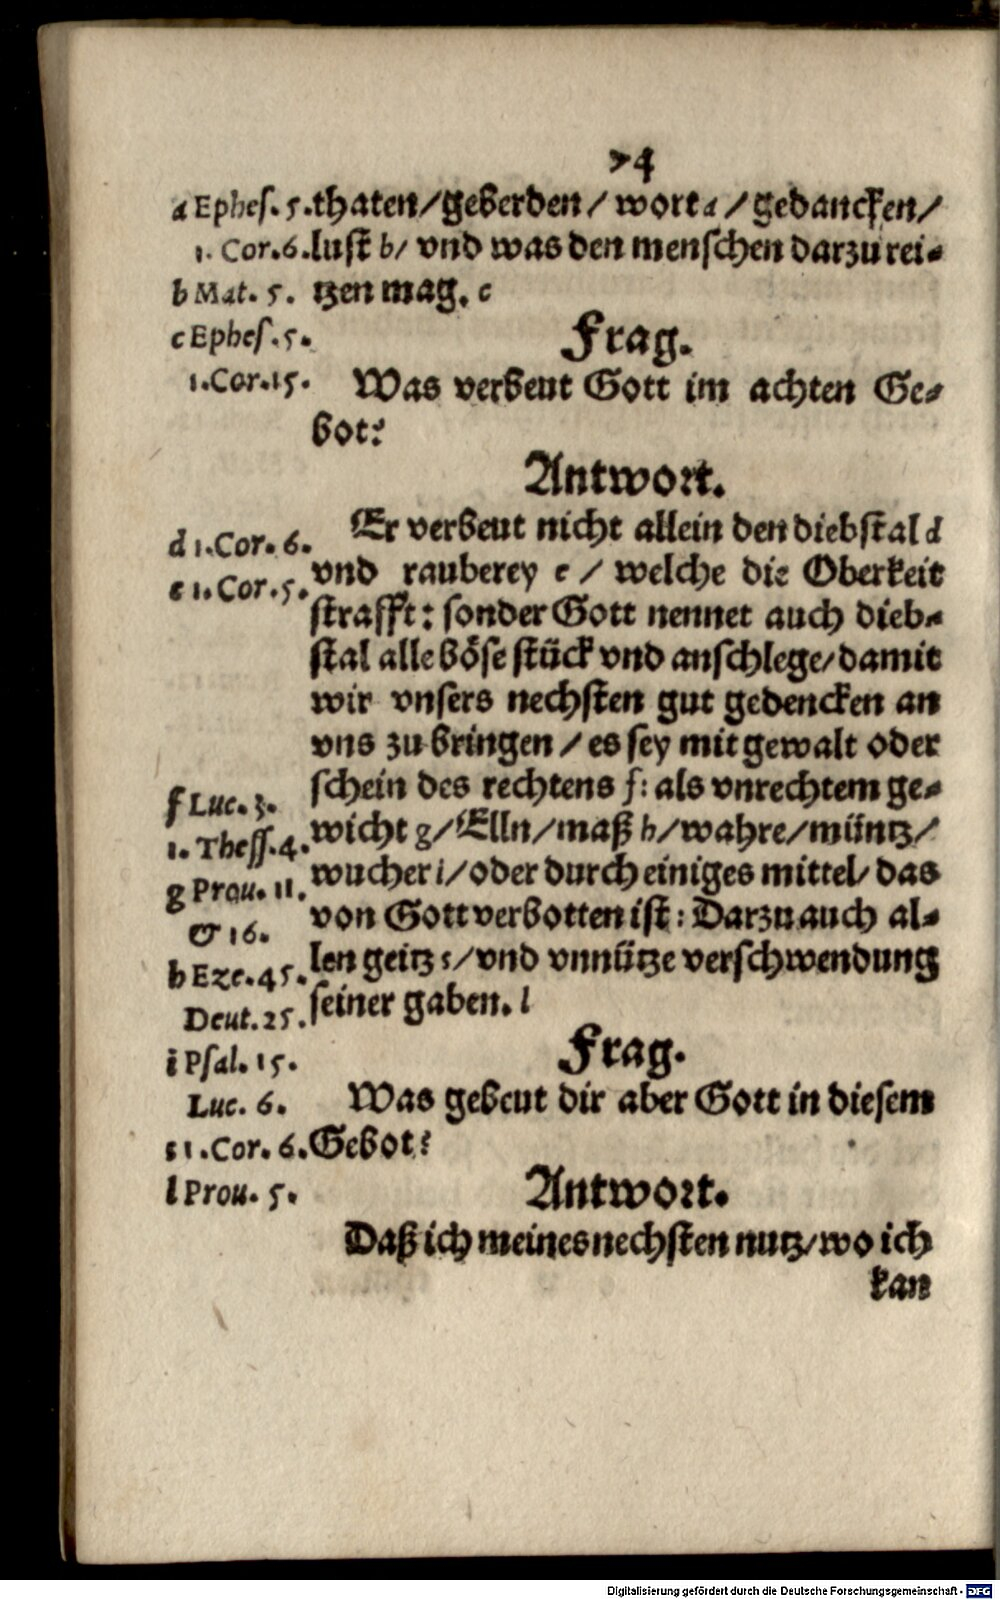 74
thaten/geberden/ wort a/ gedancken/
lust b/ vnd was den menschen darzu rei-
tzen mag. c
Frag.
Was verbeut Gott im achten Ge-
bot?
Antwort.
Er verbeut nicht allein den diebstal d
vnd rauberey e/ welche die Oberkeit
strafft: sonder Gott nennet auch dieb-
stal alle böse stück vnd anschlege/damit
wir vnsers nechsten gut gedencken an
vns zu bringen/ es sey mit gewalt oder
schein des rechtens f: als vnrechtem ge-
wicht g/ Elln/maß h/wahre/müntz/
wucher i/oder durch einiges mittel/das
von Gott verbotten ist: Darzu auch al-
len geitz s/vnd vnnütze verschwendung
seiner gaben. l
Frag.
Was gebeut dir aber Gott in diesem
Gebot?
Antwort.
Daß ich meines nechsten nutz/wo ich
kan
a Ephes. 5.
1. Cor. 6.
b Mat. 5.
c Ephes. 5.
1. Cor. 15.
d 1. Cor. 6.
e 1. Cor. 5.
f Luc. 3.
1. Thess. 4.
g Prou. 11.
& 16.
h Eze. 45.
Deut. 25.
i Psal. 15.
Luc. 6.
s 1. Cor. 6.
l Prou. 5.
Digitalisierung gefördert durch die Deutsche Forschungsgemeinschaft - DFG